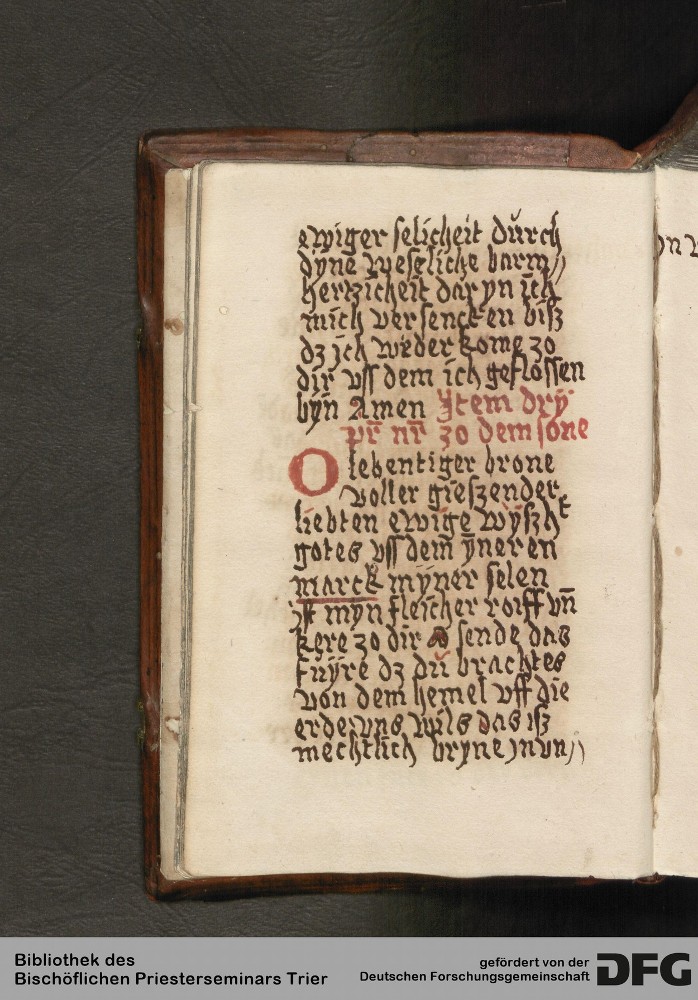 ewiger selicheit durch
dyne weseliche barm//
hertzicheit dar yn ich
mich versencken bisz
dz ich weder kome zo
dir vss dem ich geflossen
byn Amen Jtem dry
pr̄ nr̄ zo dem sone
O lebentiger brone
voller gieszender
liebten ewige wyszht
gotes vss dem yneren
marck myner selen
myn fleicher roiff vn̄
kere zo dir sende das
fuyre dz du brachtes
von dem hemel vff die
erde vns wils das isz
mechtlich bryne jn vn//
Bibliothek des
Bischöflichen Priesterseminars Trier
gefördert von der
Deutschen Forschungsgemeinschaft
DFG